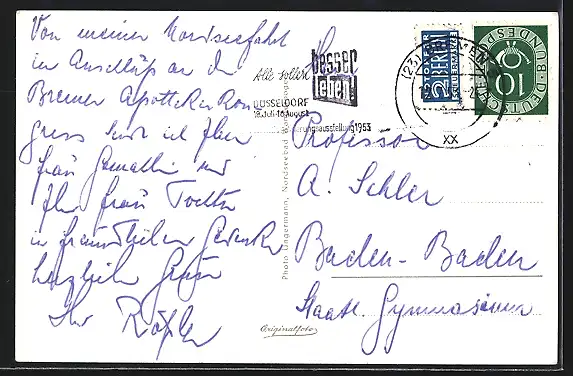 Von meiner Nordseefahrt
im Anschluß an den
Bremer Apotheker Kon
gress sende ich Ihnen
frau Gemahlin und
Ihr frau Tochter
in freundlichem Gedenken
herzliche Grüße
Ihr
Alle sollen
besser
leben!
DÜSSELDORF
18.Juli-16.August
1953
(23) BREMEN
XX
NOTOPFER
2 BERLIN
STEUERMARKE
10
DEUTSCHE BUNDESPOST
Professor
A.
Baden-Baden
Staatl. Gymnasium
Photo Ungermann, Nordseebad
Originalfoto